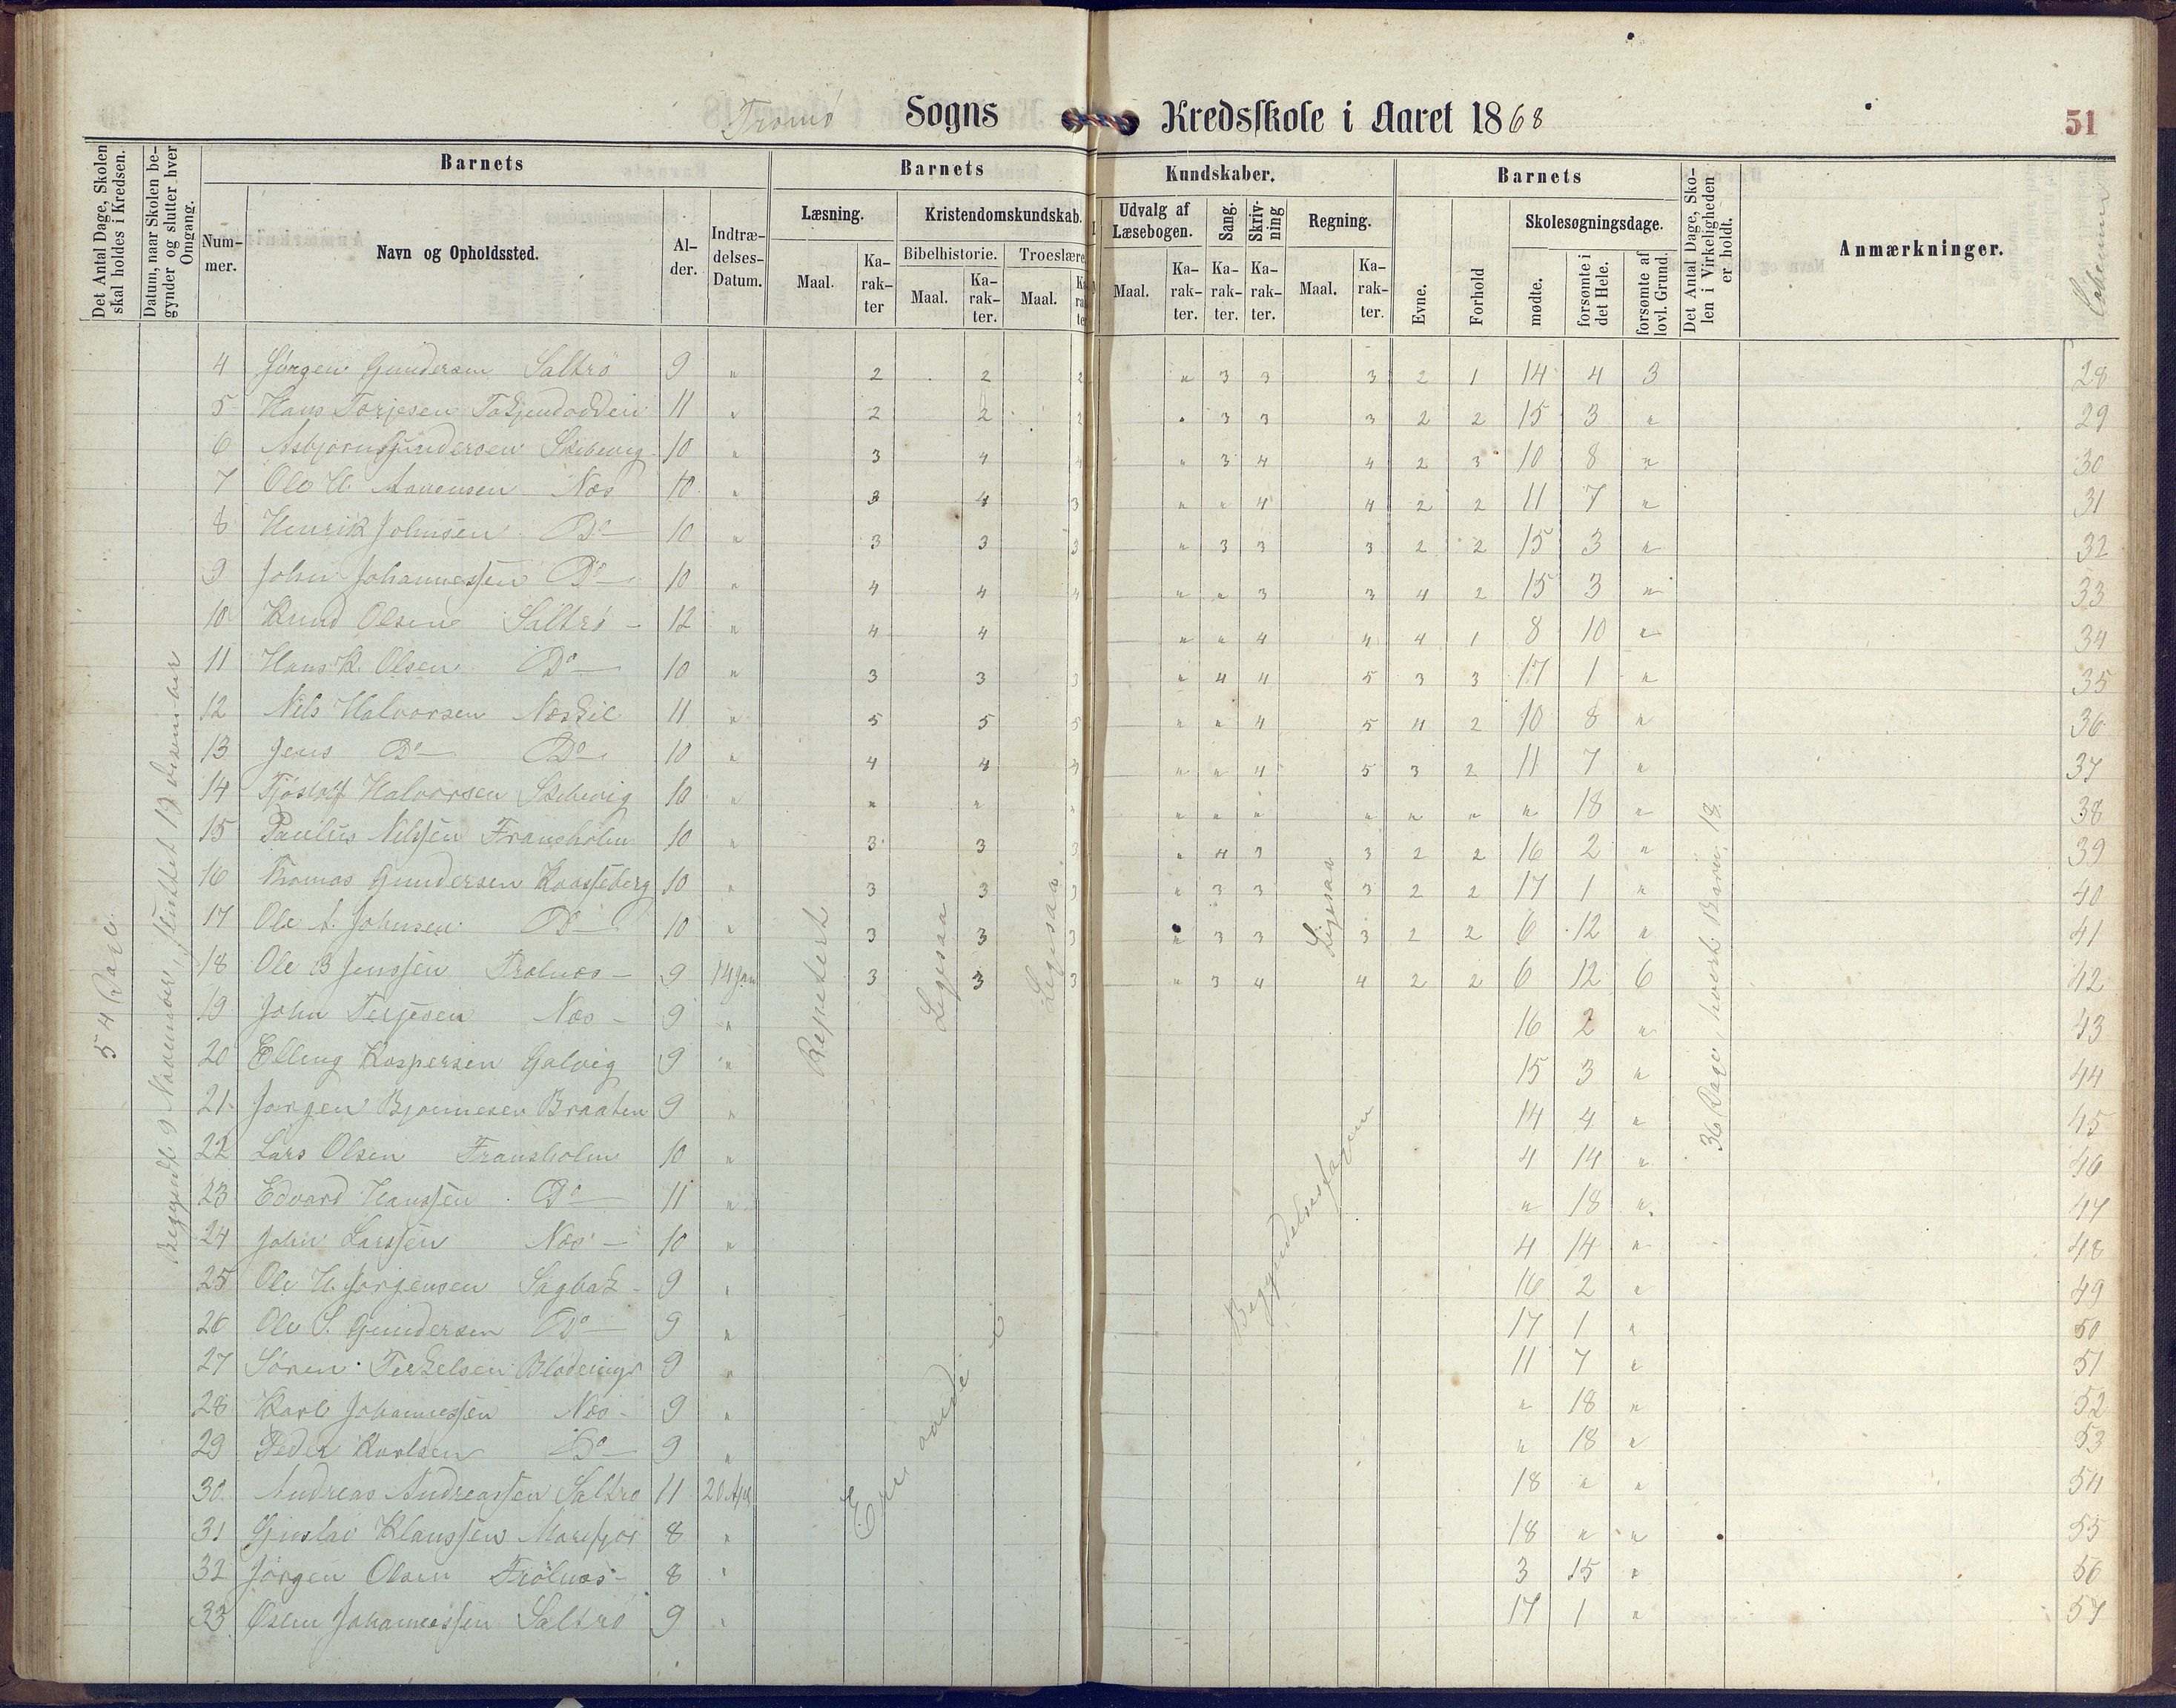 Tromø Sogns Kredsskole i Aaret 1868 51
Det Antal Dage, Skolen skal holdes i Kredsen.
Datum, naar Skolen begynder og slutter hver Omgang.
Barnets
Nummer.
Navn og Opholdssted.
Alder.
Indtrædelses-Datum.
Barnets Kundskaber.
Læsning.
Maal.
Karakter
Kristendomskundskab.
Bibelhistorie.
Maal.
Karakter.
Troeslære
Maal.
Udvalg af Læsebogen.
Maal.
Karakter.
Sang.
Karakter.
Skrivning
Karakter.
Regning.
Maal.
Karakter.
Barnets
Evne.
Forhold
Skolesøgningsdage.
mødte.
forsømte i det Hele.
forsømte af lovl. Grund.
Det Antal Dage, Skolen i Virkeligheden er holdt.
Anmærkninger.
4 Jørgen Gundersen Saltrø 9 " 2 2 2 " 3 3 3 2 1 14 4 3 28
5 Hans Torjesen 11 " 2 2 2 " 3 3 3 2 2 15 3 " 29
6 Asbjørn Gundersen Skibevig 10 " 3 4 4 " 3 4 4 2 3 10 8 " 30
7 Ole H. Aanensen Næs 10 " 3 4 3 " " 4 4 2 2 11 7 " 31
8 Henrik Johnsen Do 10 " 3 3 3 " 3 3 3 2 2 15 3 " 32
9 John Johannessen Do 10 " 4 4 4 " " 3 3 4 2 15 3 " 33
10 Knud Olsen Saltrø 12 " 4 4 " " 4 4 4 1 8 10 " 34
11 Hans K. Olsen Do 10 " 3 3 3 " 4 4 5 3 3 17 1 " 35
12 Nils Halvorsen Næskil 11 " 5 5 5 " " 4 5 4 2 10 8 " 36
13 Jens Do Do 10 " 4 4 4 " " 4 5 3 2 11 7 " 37
14 Tjøstolf Halvorsen Skibevig 10 " " " " " " " " " " " 18 " 38
15 Paulus Nilssen Fransholm 10 " 3 3 3 " 4 3 3 2 2 16 2 " 39
16 Thomas Gundersen Kaasseberg 10 " 3 3 3 " 3 3 3 2 2 17 1 " 40
17 Ole A. Johnsen Do 10 " 3 3 3 " 3 3 3 2 2 6 12 " 41
18 Ole B Jenssen Trolnæs 9 14 Jan 3 3 3 " 3 4 4 2 2 6 12 6 42
19 John Terjesen Næs 9 " 16 2 " 43
20 Elling Kaspersen Galvig 9 " 15 3 " 44
21 Jørgen Bjønnesen Braaten 9 " 14 4 " 45
22 Lars Olsen Fransholm 10 " 4 14 " 46
23 Edvard Hanssen Do 11 " " 18 " 47
24 John Larssen Næs 10 " 4 14 " 48
25 Ole H. Jørgensen Sagbak 9 " 16 2 " 49
26 Ole S. Gundersen Do 9 " 17 1 " 50
27 Søren Terkelsen 9 " 11 7 " 51
28 Karl Johannessen Næs 9 " " 18 " 52
29 Peder Karlsen Do 9 " " 18 " 53
30 Andreas Andreassen Saltrø 11 20 Apl 18 " " 54
31 Gustav Klaussen 8 " 18 " " 55
32 Jørgen Olsen Trolnæs 8 " 3 15 " 56
33 Johannessen Saltrø 9 " 17 1 " 57
54 Dage
Begyndte 9 November, sluttet 19 Desember
Repetert
Ligesaa
Ligesaa
Ligesaa
Begyndelsesfagene
36 Dage, hvert Barn 18